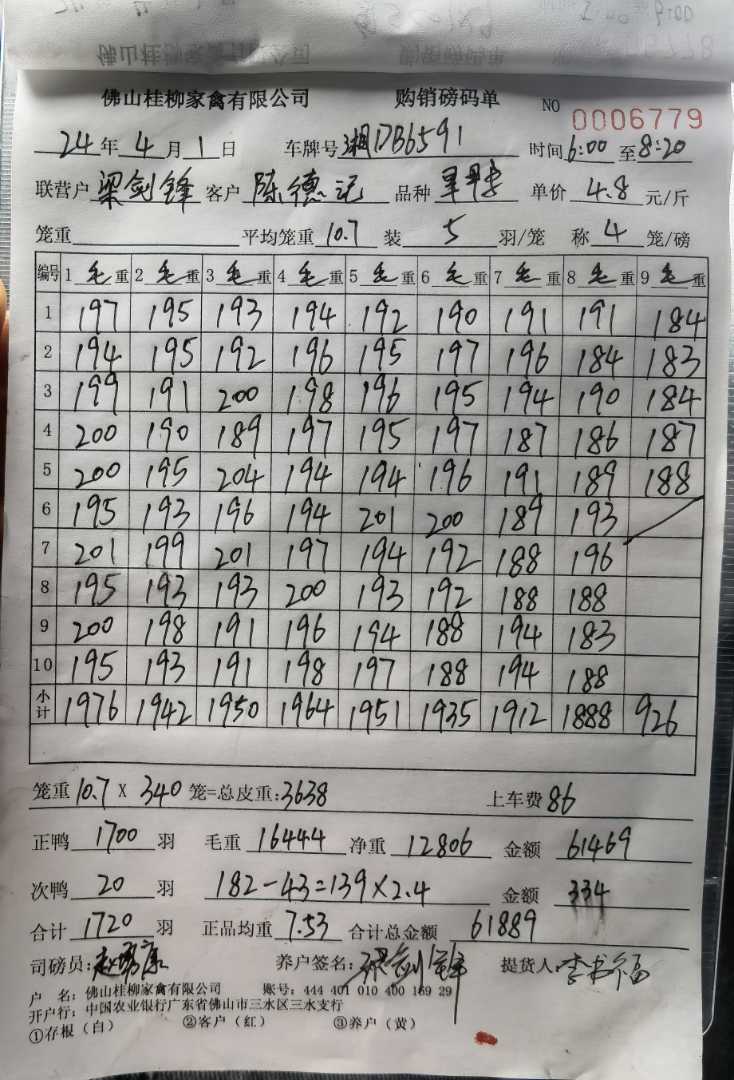 佛山桂柳家禽有限公司 购销磅码单 NO 0006779
24年4月1日 车牌号 湘DB6591 时间6:00至8:20
联营户 梁剑锋 客户 陈德记 品种 单价 4.8 元/斤
笼重 平均笼重 10.7 装 5 羽/笼 称 4 笼/磅
编号 1 毛重 2 毛重 3 毛重 4 毛重 5 毛重 6 毛重 7 毛重 8 毛重 9 毛重
1 197 195 193 194 192 190 191 191 184
2 194 195 192 196 195 197 196 184 183
3 199 191 200 198 196 195 194 190 184
4 200 190 189 197 195 197 187 186 187
5 200 195 204 194 194 196 191 189 188
6 195 193 196 194 201 200 189 193
7 201 199 201 197 194 192 188 196
8 195 193 193 200 193 192 188 188
9 200 198 191 196 194 188 194 183
10 195 193 191 198 197 188 194 188
小计 1976 1942 1950 1964 1951 1935 1912 1888 926
笼重 10.7 X 340 笼=总皮重:3638 上车费 86
正鸭 1700 羽 毛重 16444 净重 12806 金额 61469
次鸭 20 羽 182-43=139×2.4 金额 334
合计 1720 羽 正品均重 7.53 合计总金额 61889
司磅员: 养户签名:梁剑锋 提货人:李书福
户 名: 佛山桂柳家禽有限公司 账号: 444 401 010 400 169 29
开户行: 中国农业银行广东省佛山市三水区三水支行
①存根（白） ②客户（红） ③养户（黄）